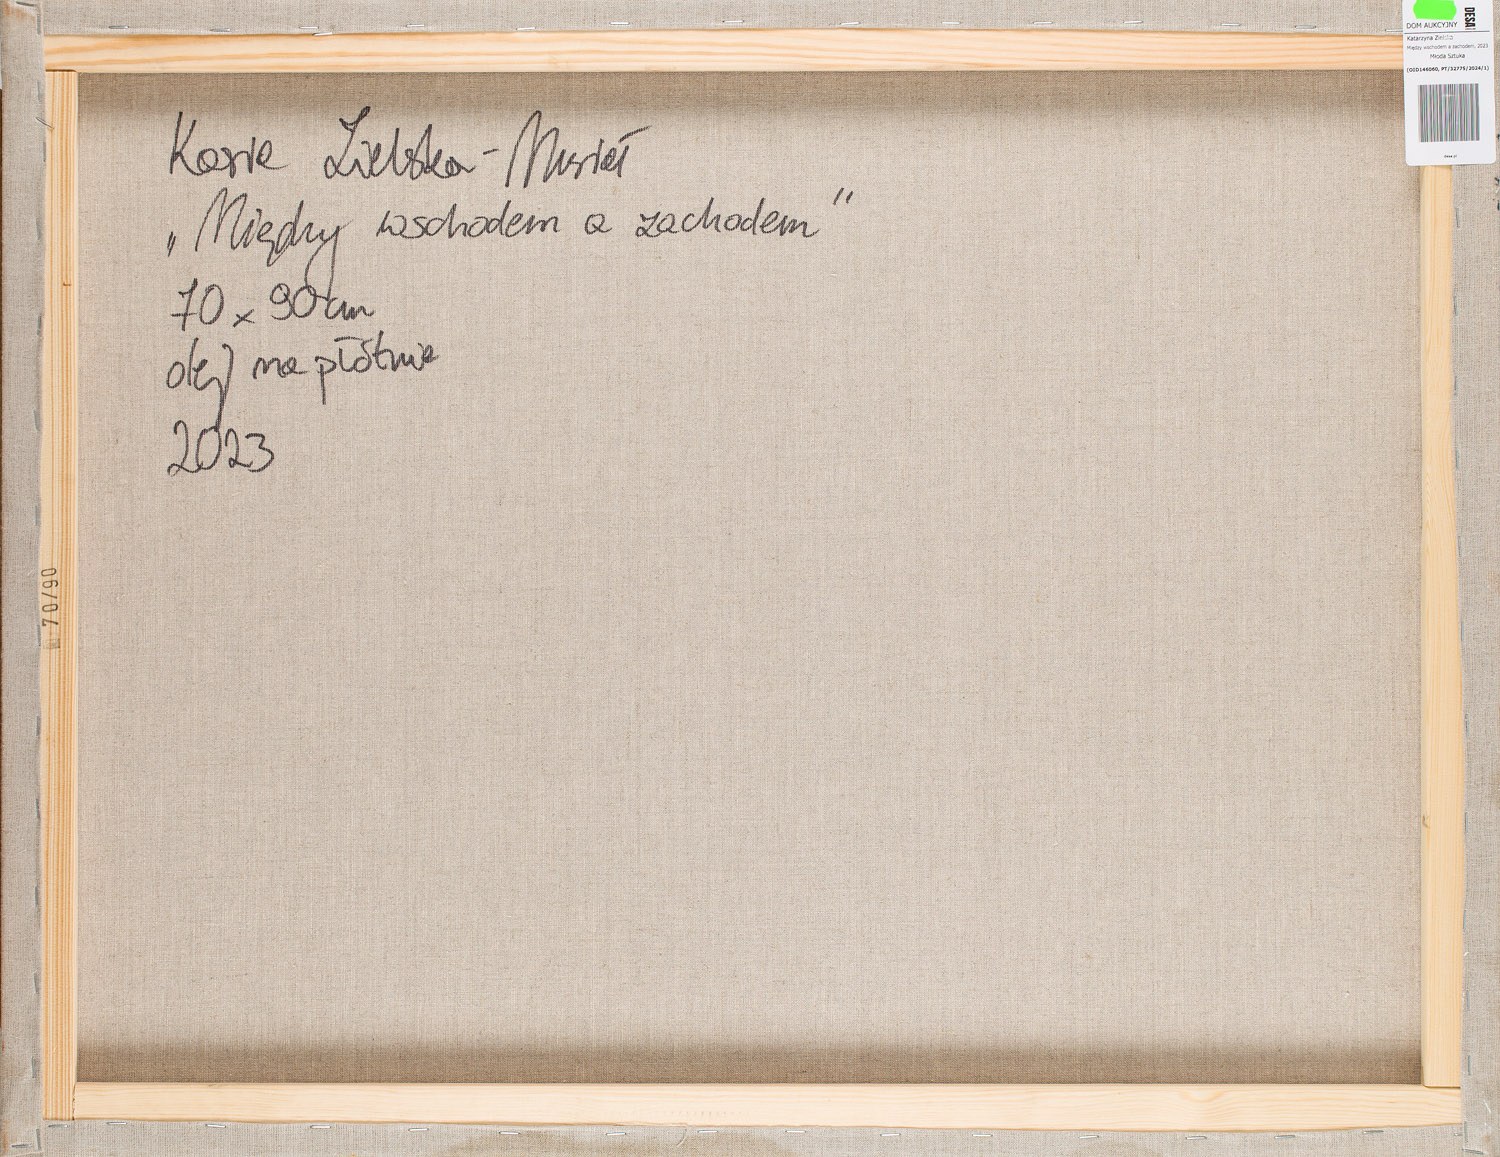 Kasia Zielska-Musiał
„Między wschodem a zachodem”
70 x 90 cm
olej na płótnie
2023
70/90
DESA
DOM AUKCYJNY
Katarzyna
Między wschodem a zachodem, 2023
Młoda Sztuka
(OID146060, PT/32775/2024/1)
desa.pl